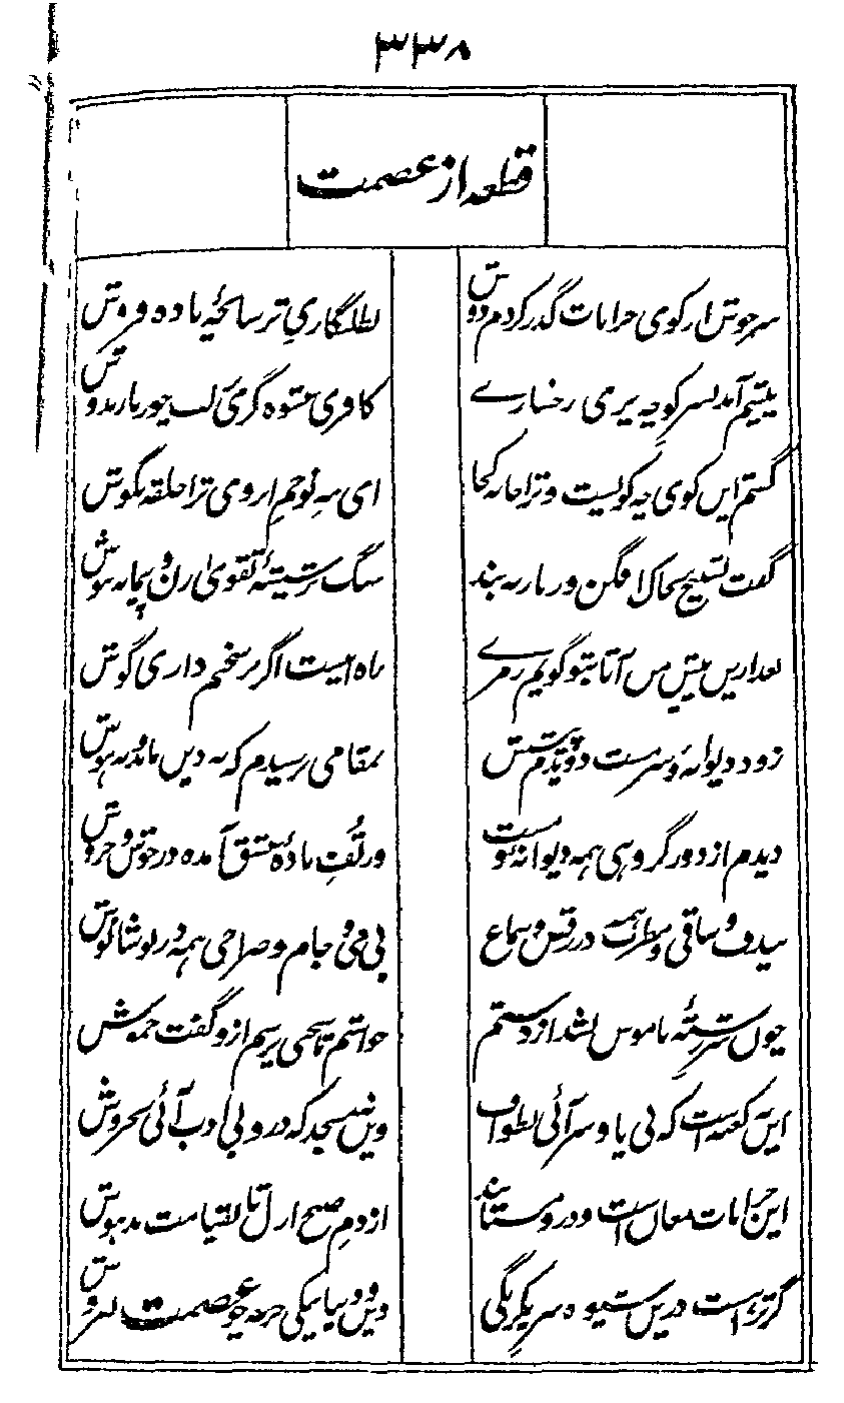 ۳۳۸
قطعه از عصمت
سرخوش از کوی خرابات گذر کردم دوش
بطلبگاری ترسابچۀ باده فروش
پیشم آمد بسر کوچه پری رخسارے
کافری عشوه گری زلف چو زنار بدوش
گفتم این کوی چه کویست و ترا خانه کجا
ای مه نو خم ابروی ترا حلقه بگوش
گفت تسبیح بخاک افگن و زنار به بند
سنگ بر شیشۀ تقویٰ زن و پیمانه بنوش
بعد ازیں پیش من آ تا بتو گویم رمزے
راه اینست اگر بر سخنم داری گوش
زود دیوانه و سرمست دویدم پیشش
بمقامی رسیدم که نه دیں ماند و نه هوش
دیدم از دور گروهی همه دیوانه و مست
وز تفِ بادۀ عشق آمده در جوش و خروش
بی دف و ساقی و مطرب همه در رقص و سماع
بی می و جام و صراحی همه در نوشانوش
چوں سر رشتۀ ناموس بشد از دستم
خواستم تا سخنی پرسم ازو گفت خموش
این نه کعبه است که بی پا و سر آئی بطواف
وین نه مسجد که درو بی ادب آئی بخروش
این خرابات مغان است و درو مستانند
از دمِ صبح ازل تا بقیامت مدهوش
گر ترا هست درین شیوه سر یکرنگی
دین و دنیا بیکی جرعه چو عصمت بفروش